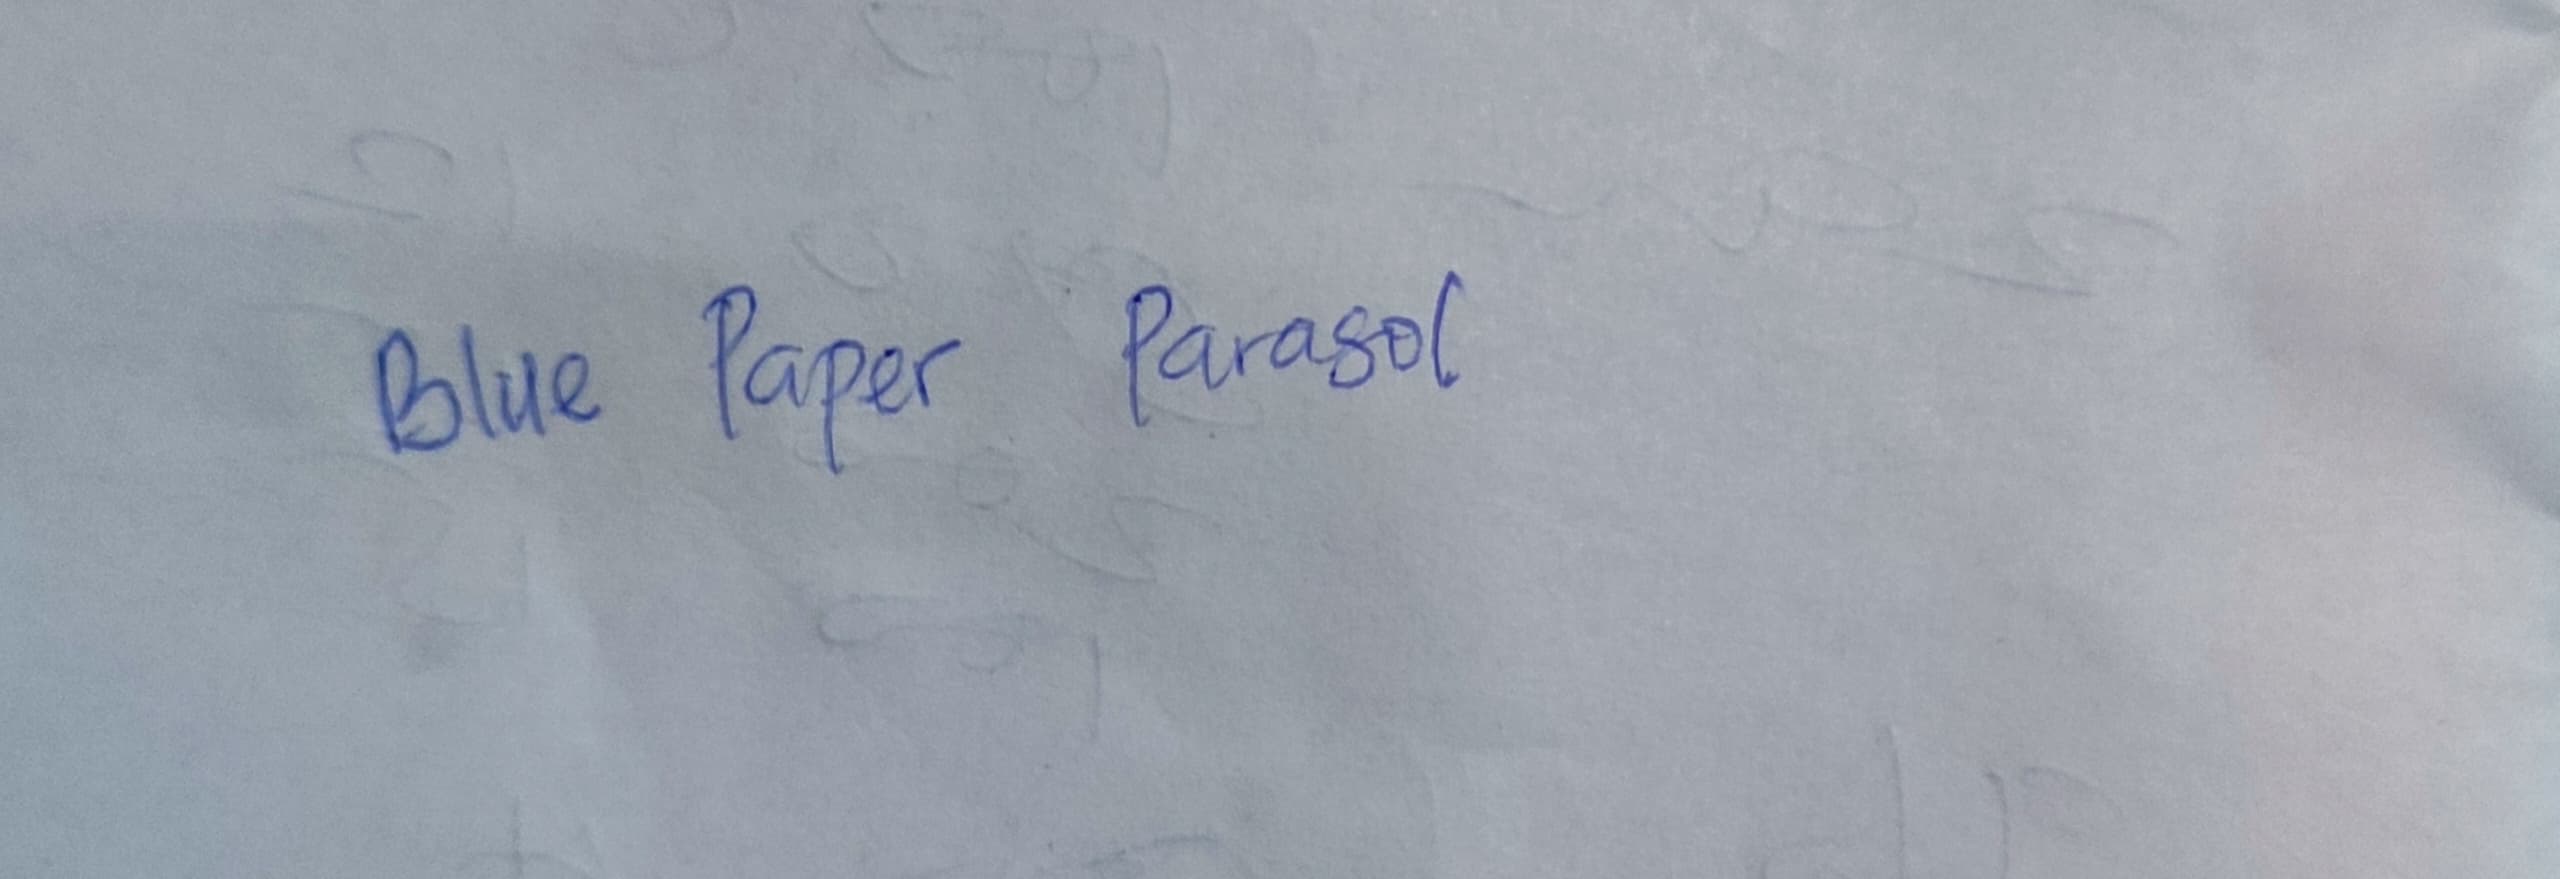 Blue Paper Parasol